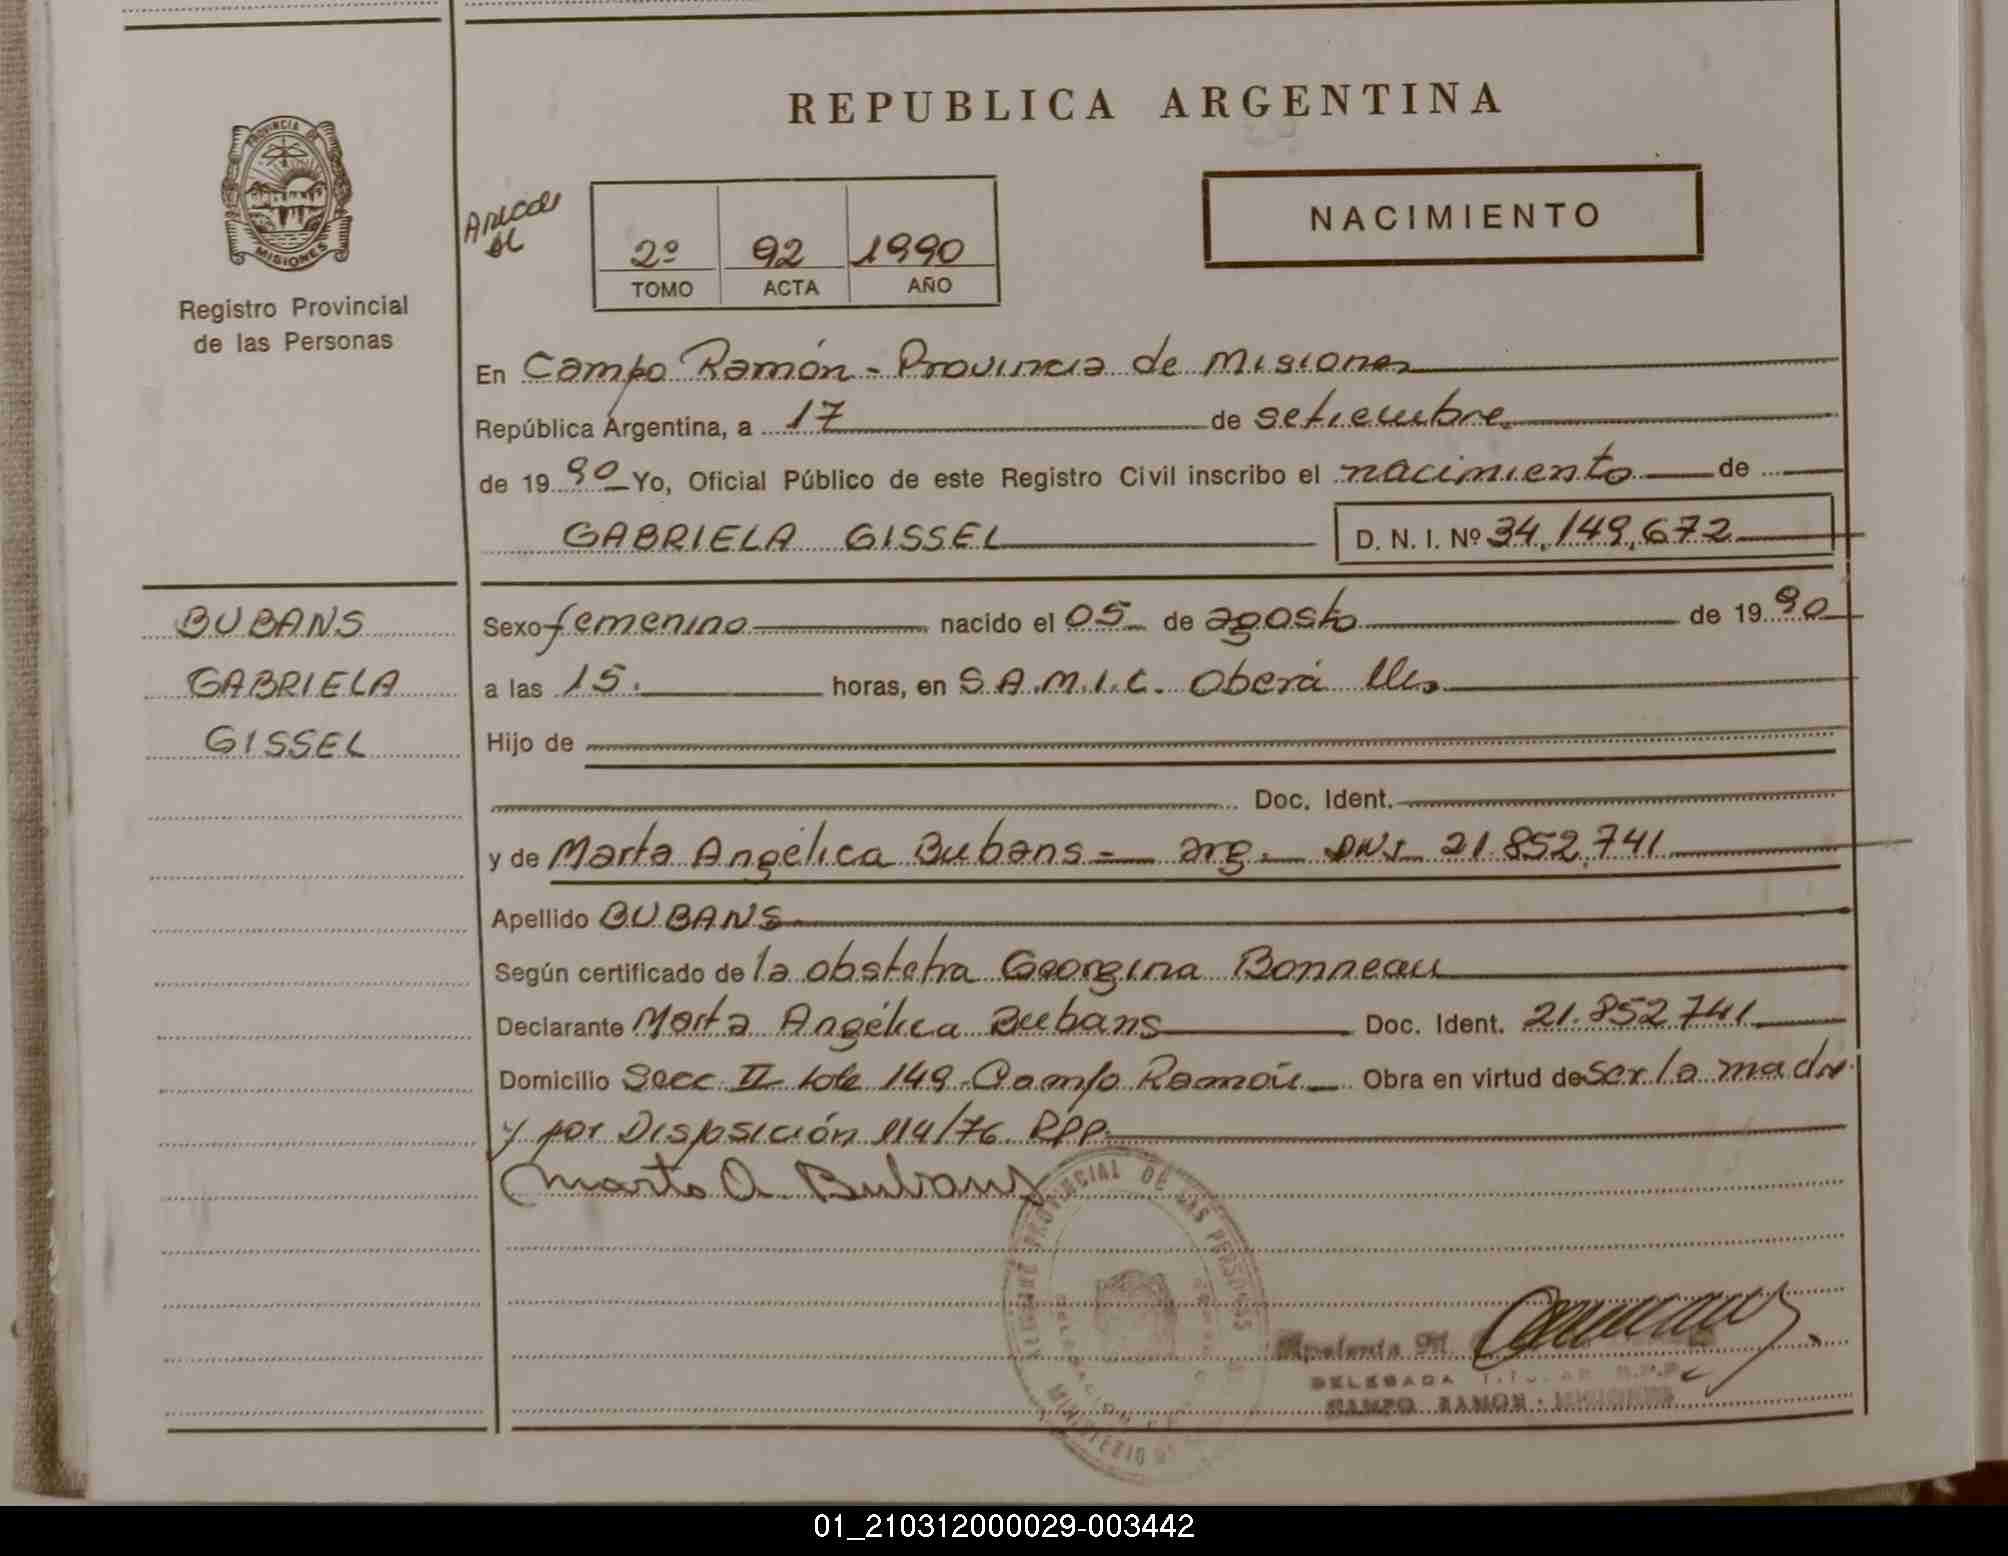 REPUBLICA ARGENTINA
PROVINCIA DE
MISIONES
Registro Provincial
de las Personas
2º 92 1990
TOMO ACTA AÑO
NACIMIENTO
En Campo Ramón - Provincia de Misiones
República Argentina, a 17 de setiembre
de 1990 Yo, Oficial Público de este Registro Civil inscribo el nacimiento de
GABRIELA GISSEL D. N. I. Nº 34,149,672
BUBANS
GABRIELA
GISSEL
Sexo femenino nacido el 05 de agosto de 1990
a las 15. horas, en S.A.M.I.C. Oberá
Hijo de
Doc. Ident.
y de Marta Angélica Bubans - arg. DNI 21.852.741
Apellido BUBANS
Según certificado de la obstetra Georgina Bonneau
Declarante Marta Angélica Bubans Doc. Ident. 21.852741
Domicilio Secc II lote 149 - Campo Ramón Obra en virtud de ser la madre
y por Disposición 114/76 RPP.
Marta A. Bubans
PROVINCIAL DE LAS PERSONAS
DELEGADA TITULAR R.P.P.
CAMPO RAMON - MISIONES
01_210312000029-003442